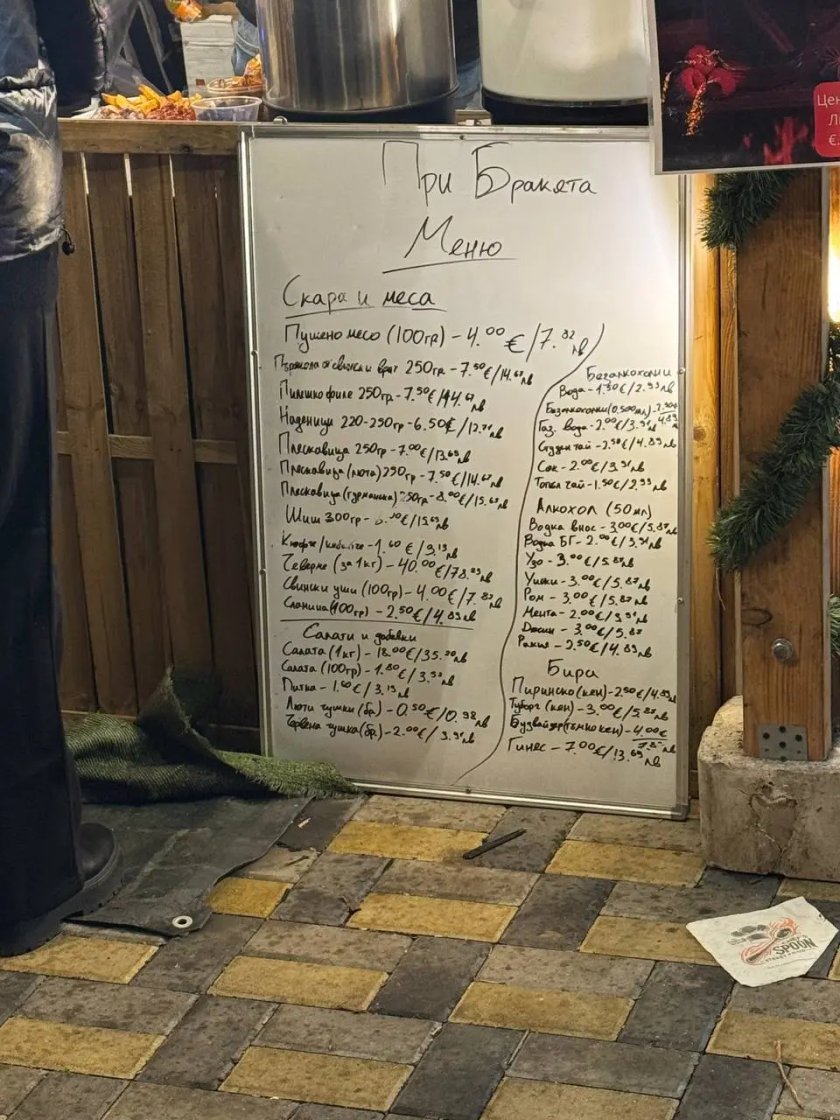 При Бракята
Меню
Скара и меса
Пушено месо (100гр) - 4.00 € / 7.82 лв
Пържола от свински врат 250гр - 7.50€/14.67лв
Пилешко филе 250гр - 7.50€/14.67лв
Наденици 220-250гр - 6.50€/12.71лв
Плескавица 250гр - 7.00€/13.69лв
Плескавица (люта) 250гр - 7.50€/14.67лв
Плескавица (гурманска) 250гр - 8.00€/15.65лв
Шиш 300гр - €/15.65лв
Кюфте/кебапче - 1.60 €/3.13лв
Чеверме (за 1кг) - 40.00€/78.23лв
Свински уши (100гр) - 4.00€/7.82лв
Сланина (100гр) - 2.50€/4.89лв
Салати и добавки
Салата (1кг) - 18.00€/35.20лв
Салата (100гр) - 1.80€/3.52лв
Питка - 1.60€/3.13лв
Люти чушки (бр.) - 0.50€/0.98лв
Червена чушка (бр.) - 2.00€/3.91лв
Безалкохолни
Вода - 1.50€/2.93лв
Безалкохолни (0.500мл) - 2.50€
4.89лв
Газ. вода - 2.00€/3.91лв
Студен чай - 2.50€/4.89лв
Сок - 2.00€/3.91лв
Топъл чай - 1.50€/2.93лв
Алкохол (50мл)
Водка внос - 3.00€/5.87лв
Водка БГ - 2.00€/3.91лв
Узо - 3.00€/5.87лв
Уиски - 3.00€/5.87лв
Ром - 3.00€/5.87лв
Мента - 2.00€/3.91лв
Джин - 3.00€/5.87
Ракия - 2.50€/4.89лв
Бира
Пиринско (кен) - 2.50€/4.89лв
Туборг (кен) - 3.00€/5.87лв
Будвайзер (тъмно кен) - 4.00€
7.82лв
Гинес - 7.00€/13.69лв
SPOON